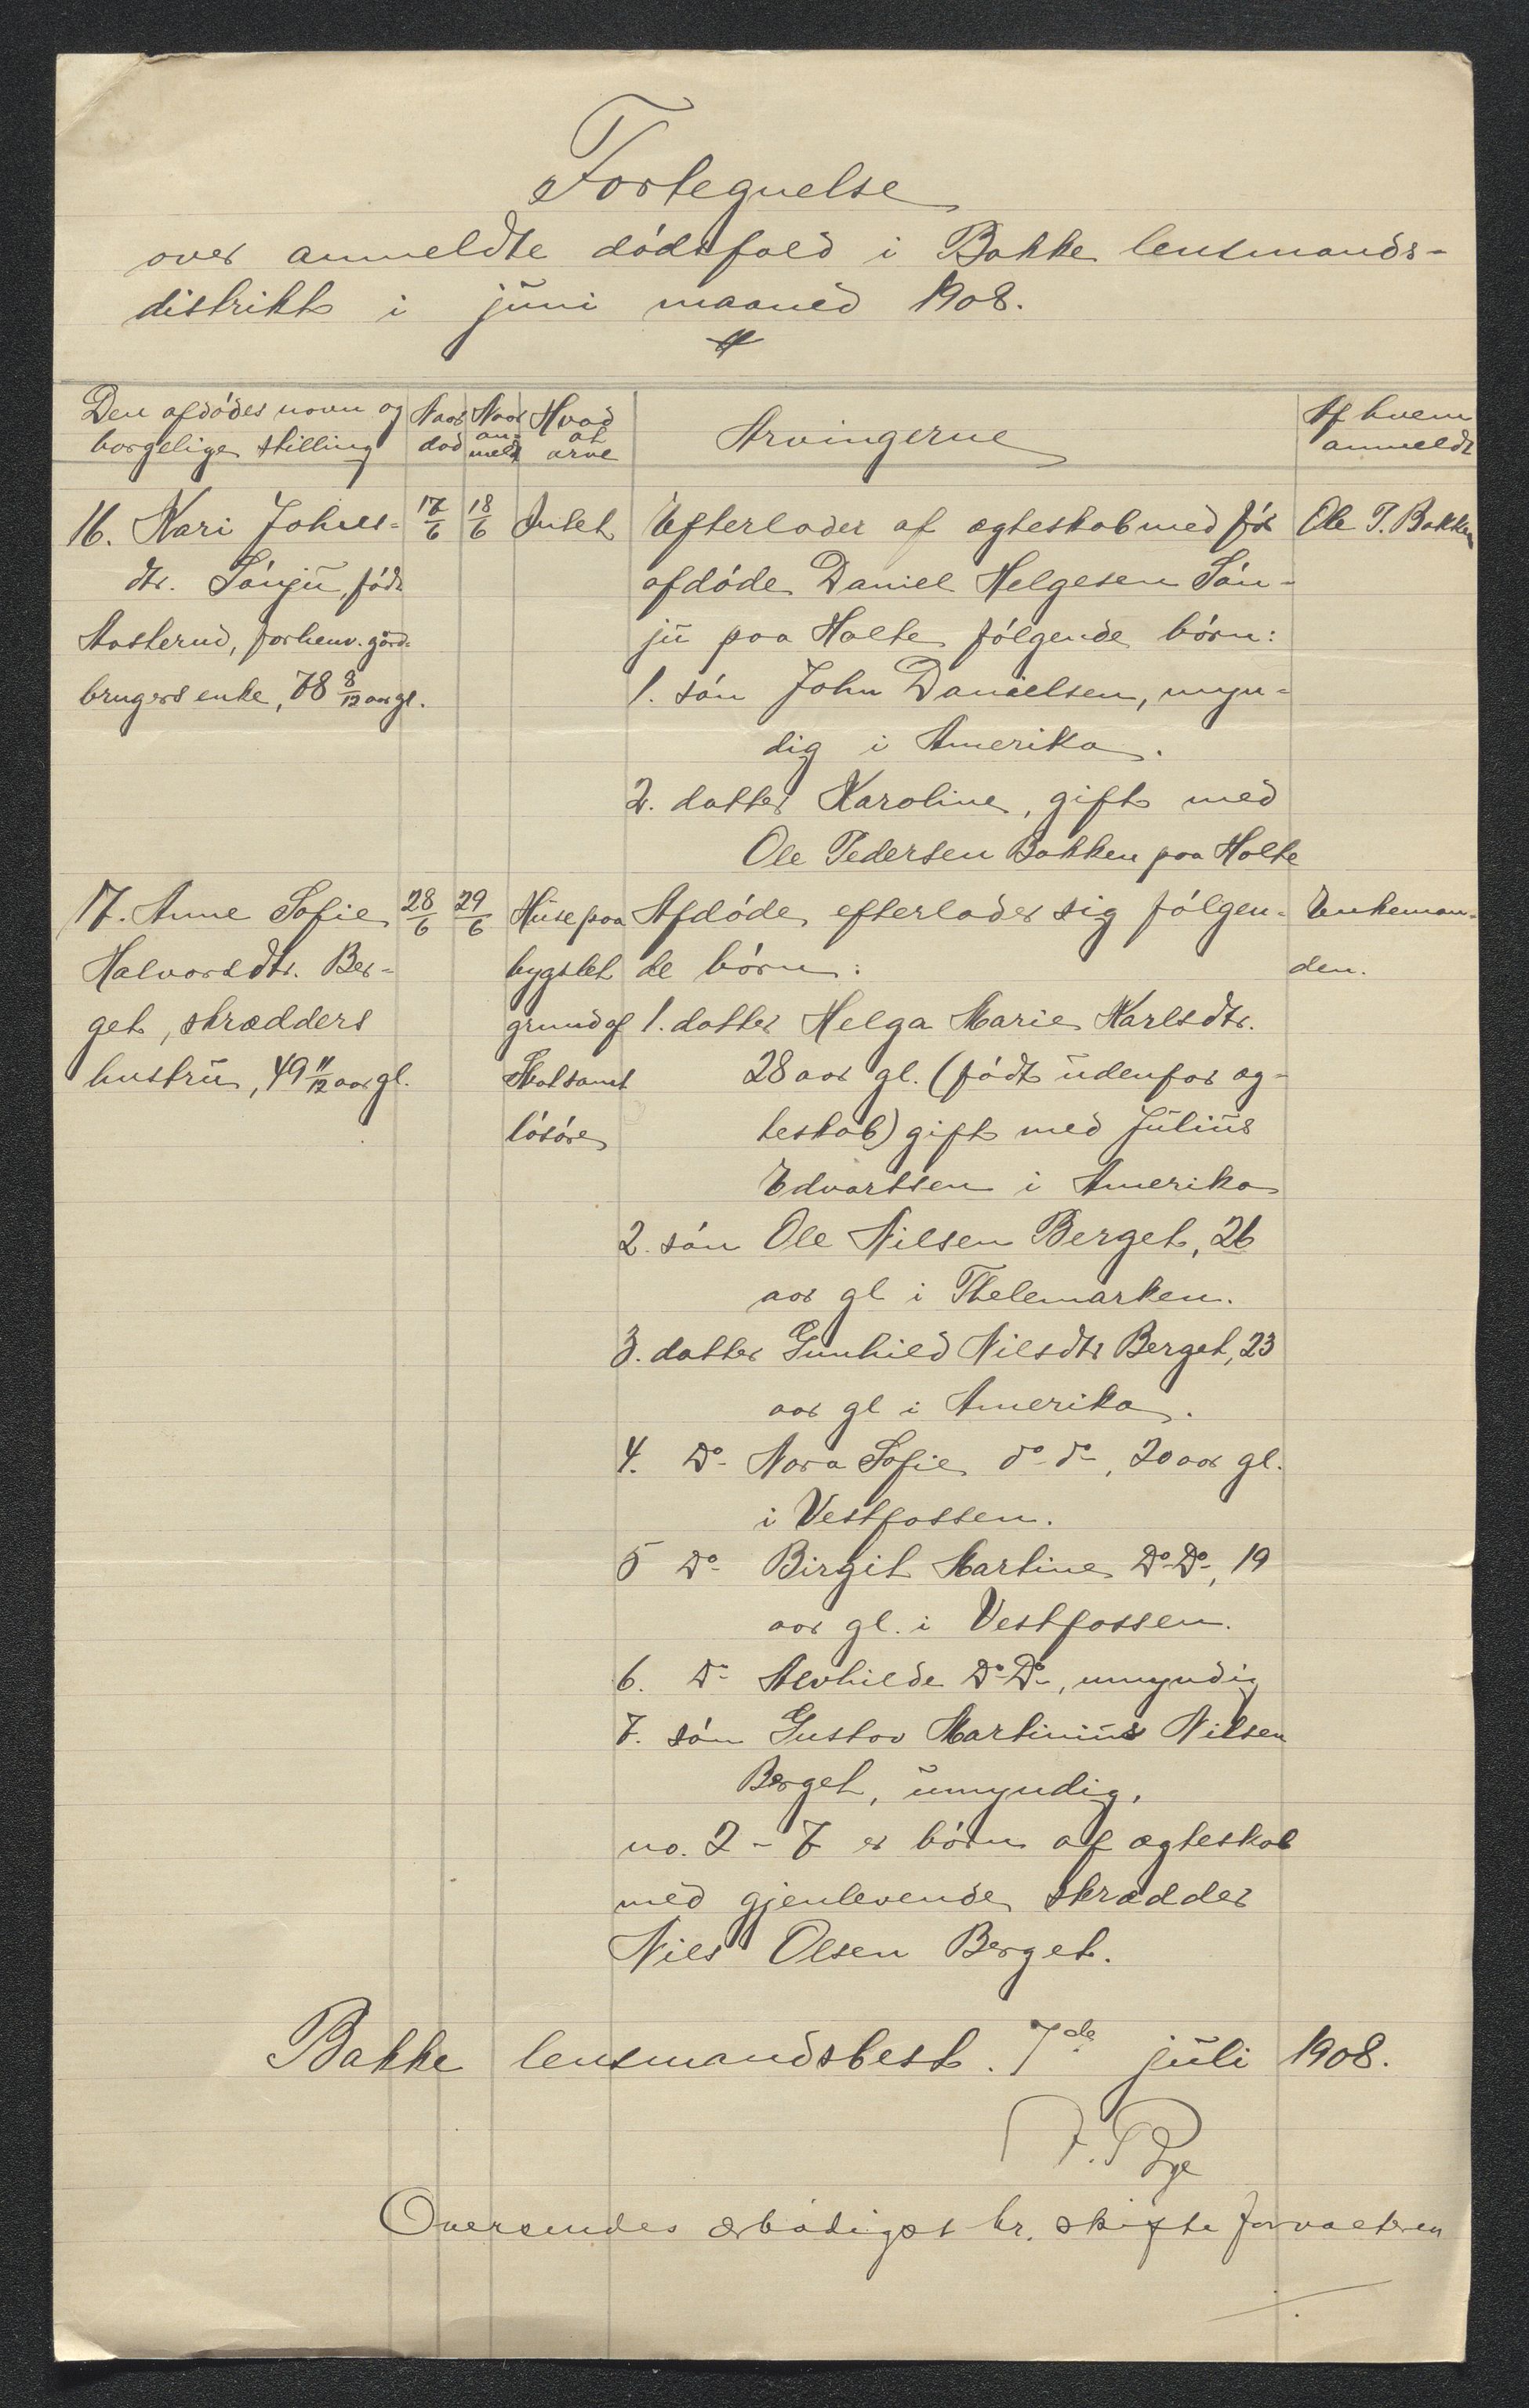 Fortegnelse
over anmeldte dødsfald i Bakke lensmands-
distrikt i juni maaned 1908.
Den afdødes navn og borgelige stilling | Naar død | Naar an-meldt | Hvad at arve | Arvingerne | Af hvem anmeldt
16. Kari Johns- | 17/6 | 18/6 | Intet | Efterlader af ægteskab med før | Ole P. Bakken
dtr. Sønju, født | afdøde Daniel Helgesen Søn-
Aasterud, forhenv. gård- | ju paa Holte følgende børn:
brugers enke, 78 8/12 aar gl. | 1. søn John Danielsen, myn-
dig i Amerika.
2. datter Karoline, gift med
Ole Pedersen Bakken paa Holte
17. Anne Sofie | 28/6 | 29/6 | Huse paa | Afdøde efterlader sig følgen- | Enkeman-
Halvorsdtr. Ber- | bygslet | de børn: | den.
get, skrædders | grund af | 1. datter Helga Marie Karlsdtr.
hustru, 49 11/12 aar gl. | samt | 28 aar gl. (født udenfor æg-
løsøre | teskab) gift med Julius
Edvartsen i Amerika
2. søn Ole Nilsen Berget, 26
aar gl i Thelemarken.
3. datter Gunhild Nilsdtr Berget, 23
aar gl i Amerika.
4. Do- Nora Sofie do- do-, 20 aar gl.
i Vestfossen.
5 Do- Birgit Martine Do- Do-, 19
aar gl. i Vestfossen.
6. Do- Alvhilde Do- Do-, umyndig
7. søn Gustav Martinius Nilsen
Berget, umyndig.
no. 2 - 7 er børn af ægteskab
med gjenlevende skrædder
Nils Olsen Berget.
Bakke lensmandsbest. 7de juli 1908.
Oversendes ærbødigst hr. skifteforvalteren